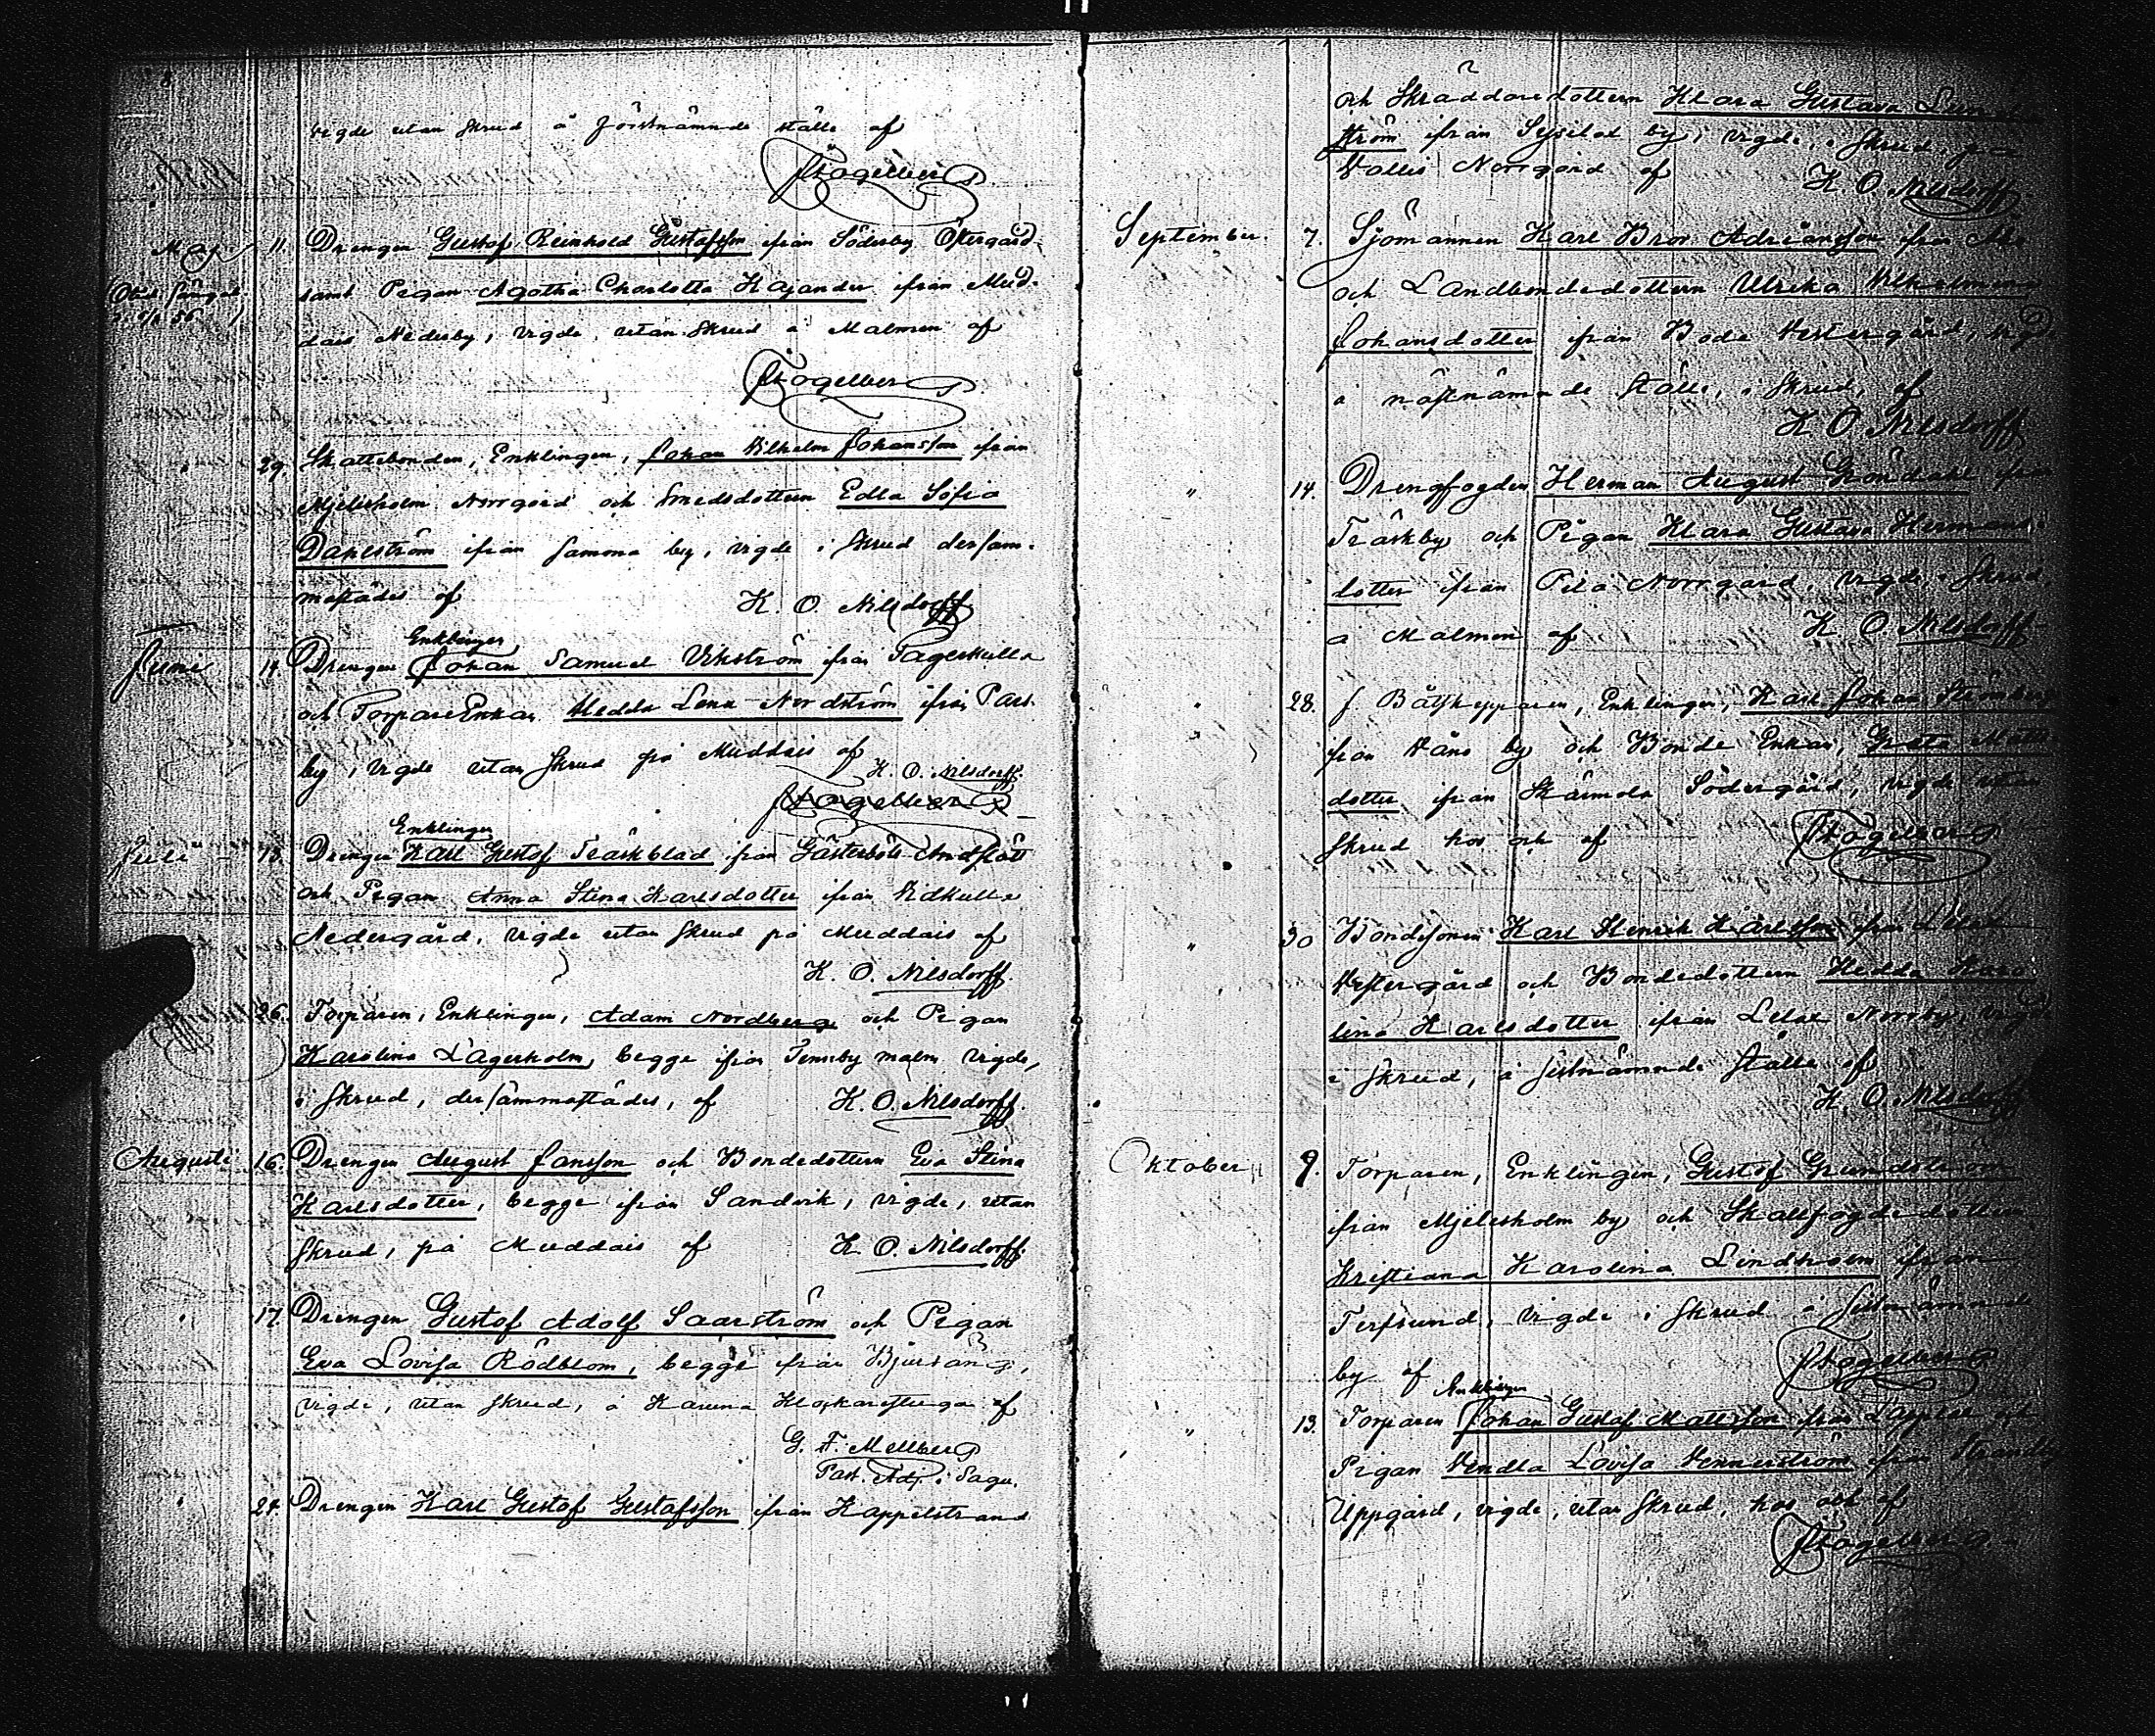 vigde utan skrud å förstnämnde ställe af
Maj 11. Drengen Gustof Reinhold Gustafsson ifrån Söderby Östergård
samt Pigan Agatha Charlotta Kajander ifrån Mud-
dais Nederby, vigde utan skrud å Malmen af
29. Skattebonden, Enklingen, Johan Vilhelm Johansson ifrån
Mjelisholm Norrgård och Smedsdottern Edla Sofia
Dahlström ifrån samma by, vigde i skrud dersam-
mastädes af K. O. Nilsdorff
Enklingen
Juni 14. Drengen Johan Samuel Vikström ifrån Pagerkulla
och TorpareEnkan Hedda Lena Nordström ifrån Pars-
by, vigde utan skrud på Muddais af K. O. Nilsdorff.
Enklingen
Juli 13. Drengen Karl Gustof Träskblad ifrån Gästerböle
och Pigan Anna Stina Karlsdotter ifrån Vidkulla
Nedergård, vigde utan skrud på Muddais af
K. O. Nilsdorff.
26. Torparen, Enklingen, Adam Nordberg och Pigan
Karolina Lagerholm, begge ifrån Tennby malm vigde,
i skrud, dersammastädes, af K. O. Nilsdorff.
Augusti 16. Drengen August Jansson och Bondedottern Eva Stina
Karlsdotter, begge ifrån Sandvik, vigde, utan
skrud, på Muddais af K. O. Nilsdorff.
" 17. Drengen Gustof Adolf Saarström och Pigan
Eva Lovisa Rödblom, begge ifrån Bjursäng,
vigde, utan skrud, å Karuna Klockarestuga af
G. F. Mellberg
Past. Adj. i Sagu.
" 24. Drengen Karl Gustof Gustafsson ifrån Kappelstrand
och Skräddaredottern Klara Gustava
ström ifrån by, vigde, i skrud, på
Vallis Norrgård af K. O. Nilsdorff
September. 7. Sjömannen Karl Bror Adriansson från
och Landbondedottern Ulrika Vilhelmina
Johansdotter ifrån Bode Vestergård,
å näst nämnde ställe, i skrud, af
K. O. Nilsdorff
" 14. Drengfogden Herman August Gröndahl från
Träskby och Pigan Klara Gustava Hermans-
dotter ifrån Pila Norrgård, vigde i skrud,
å Malmen af K. O. Nilsdorff
" 28. f. Båtskepparen, Enklingen, Karl Johan Strömberg
från Våno by och Bonde Enkan, Greta Matts
dotter ifrån Skärmola Södergård, vigde utan
skrud hos och af
" 30 Bondesonen Karl Henrik Karlsson från
Vestergård och Bondedottern Hedda Karo
lina Karlsdotter ifrån Norrby, vigde
i skrud, å sistnämnde ställe af
K. O. Nilsdorff
Oktober 9. Torparen, Enklingen, Gustof Grundström
ifrån Mjelisholm by och Skallfogdedottern
Kristiana Karolina Lindholm ifrån
Terfsund, vigde i skrud i sistnämnde
by af
Enklingen
" 13. Torparen Johan Gustaf Mattsson från och
Pigan Vendla Lovisa Vennerström från Strandby
Uppgård, vigde, utan skrud, hos och af